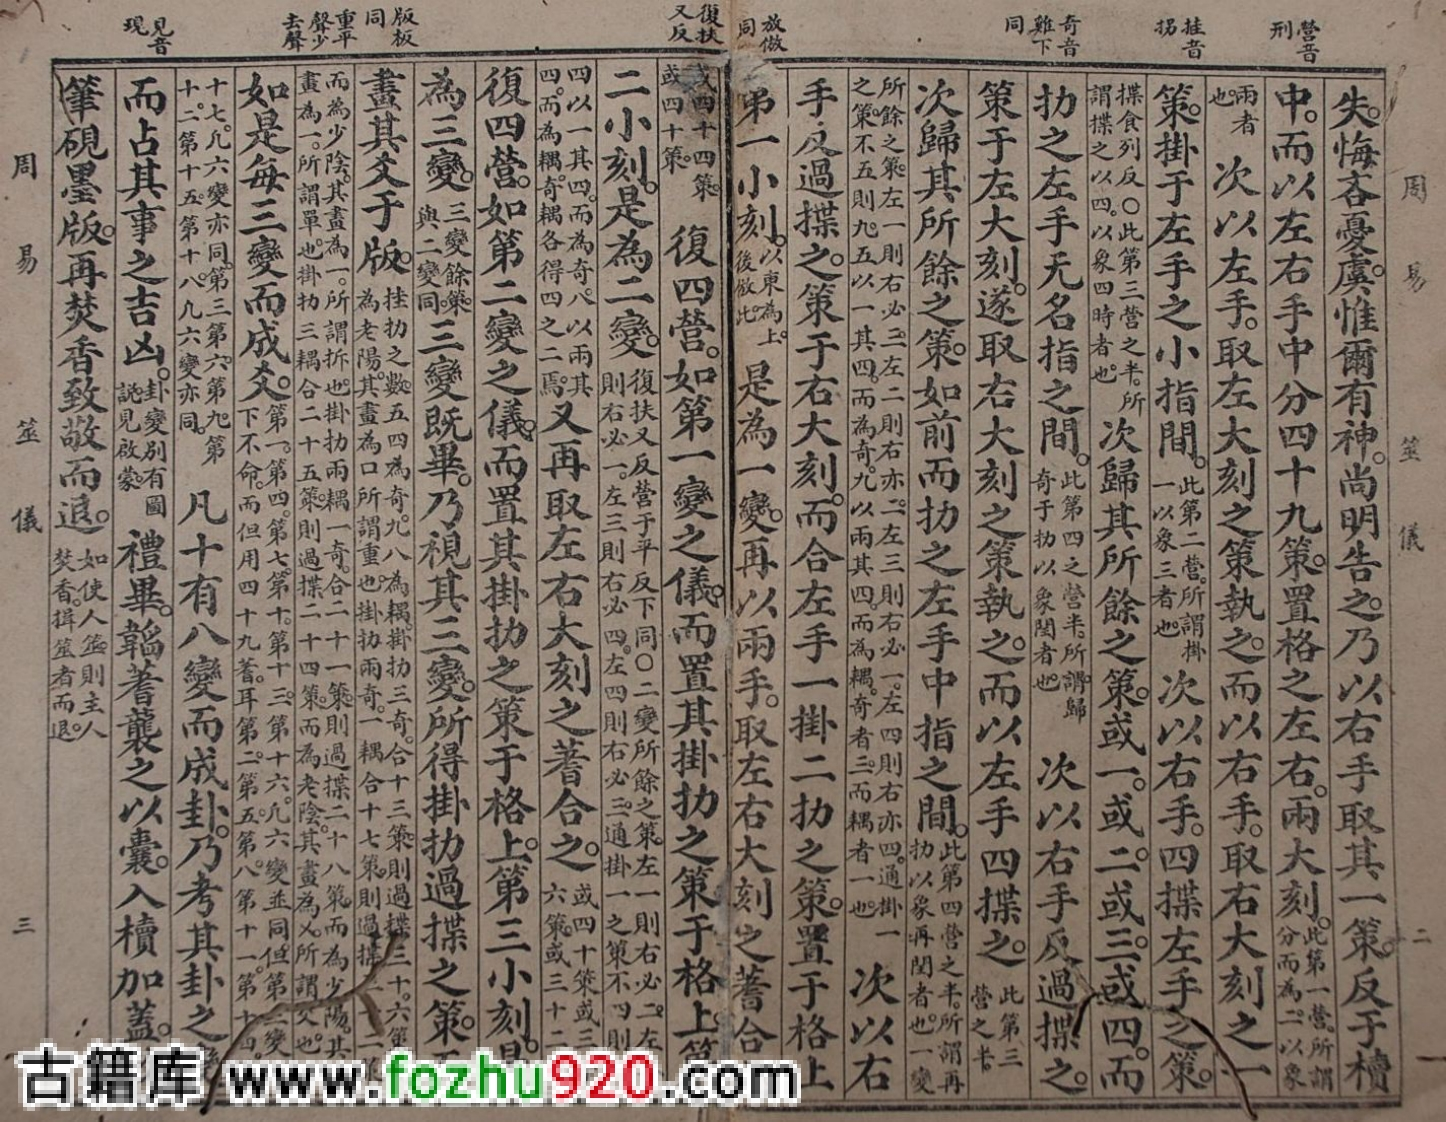 營音刑
挂音拐
奇音雞下同
放倣同
復扶又反
版板同
重平聲少去聲
見音現
周易 筮儀 二
失悔吝憂虞。惟爾有神。尚明告之。乃以右手取其一策。反于櫝
中。而以左右手中分四十九策。置格之左右。兩大刻。此第一營。所謂分而為二。以象
兩者也。 次以左手。取左大刻之策執之。而以右手。取右大刻之一
策。掛于左手之小指間。此第二營。所謂掛一以象三者也。 次以右手。四揲左手之策。
揲食列反。○此第三營之半。所謂揲之以四。以象四時者也。 次歸其所餘之策。或一。或二。或三。或四。而
扐之左手无名指之間。此第四之營半。所謂歸奇于扐以象閏者也。 次以右手。反過揲之
策于左大刻。遂取右大刻之策執之。而以左手四揲之。此第三營之半。
次歸其所餘之策。如前而扐之左手中指之間。此第四營之半。所謂再扐以象再閏者也。一變
所餘之策。左一則右必三。左二則右亦二。左三則右必一。左四則右亦四。通掛一之策。不五則九。五以一其四。而為奇。九以兩其四。而為耦。奇者三。而耦者一也。 次以右
手反過揲之。策于右大刻。而合左手一掛二扐之策。置于格上
第一小刻。以東為上。後倣此。 是為一變。再以兩手。取左右大刻之蓍合
或四十四策。或四十策。 復四營。如第一變之儀。而置其掛扐之策于格上。第
二小刻。是為二變。復扶又反。營于平反。下同。○二變所餘之策。左一則右必二。左則右必一。左三則右必四。左四則右必三。通掛一之策。不四則
四以一其四。而為奇。八以兩其四。而為耦。奇耦各得四之二焉。 又再取左右大刻之蓍合之。或四十策。或三六策。或三十二
復四營。如第二變之儀。而置其掛扐之策于格上。第三小刻。是
為三變。三變餘策。與二變同。 三變既畢。乃視其三變所得掛扐過揲之策。
畫其爻于版。挂扐之數。五四為奇。九八為耦。掛扐三奇。合十三策。則過揲三十六策。為老陽。其畫為口。所謂重也。掛扐兩奇。一耦。合十七策。則過揲
而為少陰。其畫為一。所謂拆也。掛扐兩耦一奇。合二十一策。則過揲二十八策。而為少陽。其畫為一。所謂單也。掛扐三耦。合二十五策。則過揲二十四策。而為老陰。其畫為乂。所謂交也。
如是每三變而成爻。第一。第四。第七。第十。第十三。第十六。凡六變並同。但第變下不命。而但用四十九蓍耳。第二。第五。第八。第十一。第十四
十七。凡六變亦同。第三。第六。第九。第十二。第十五。第十八。凡六變亦同。 凡十有八變而成卦。乃考其卦之變
而占其事之吉凶。卦變別有圖說。見啟蒙。 禮畢。韜蓍襲之以囊。入櫝加蓋。
筆硯墨版。再焚香致敬而退。如使人筮。則主人焚香。揖筮者而退。
周易 筮儀 三
古籍库 www.fozhu920.com